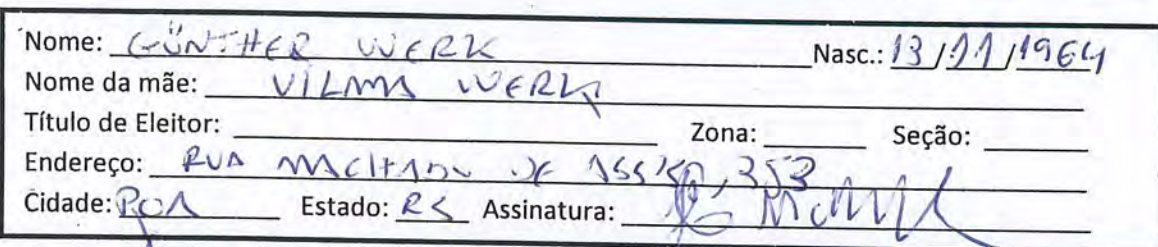 Nome: GÜNTHER WERK Nasc.: 13/11/1964
Nome da mãe: VILMA WERK
Título de Eleitor: Zona: Seção:
Endereço: RUA MACHADO DE ASSIS, 353
Cidade: POA Estado: RS Assinatura: